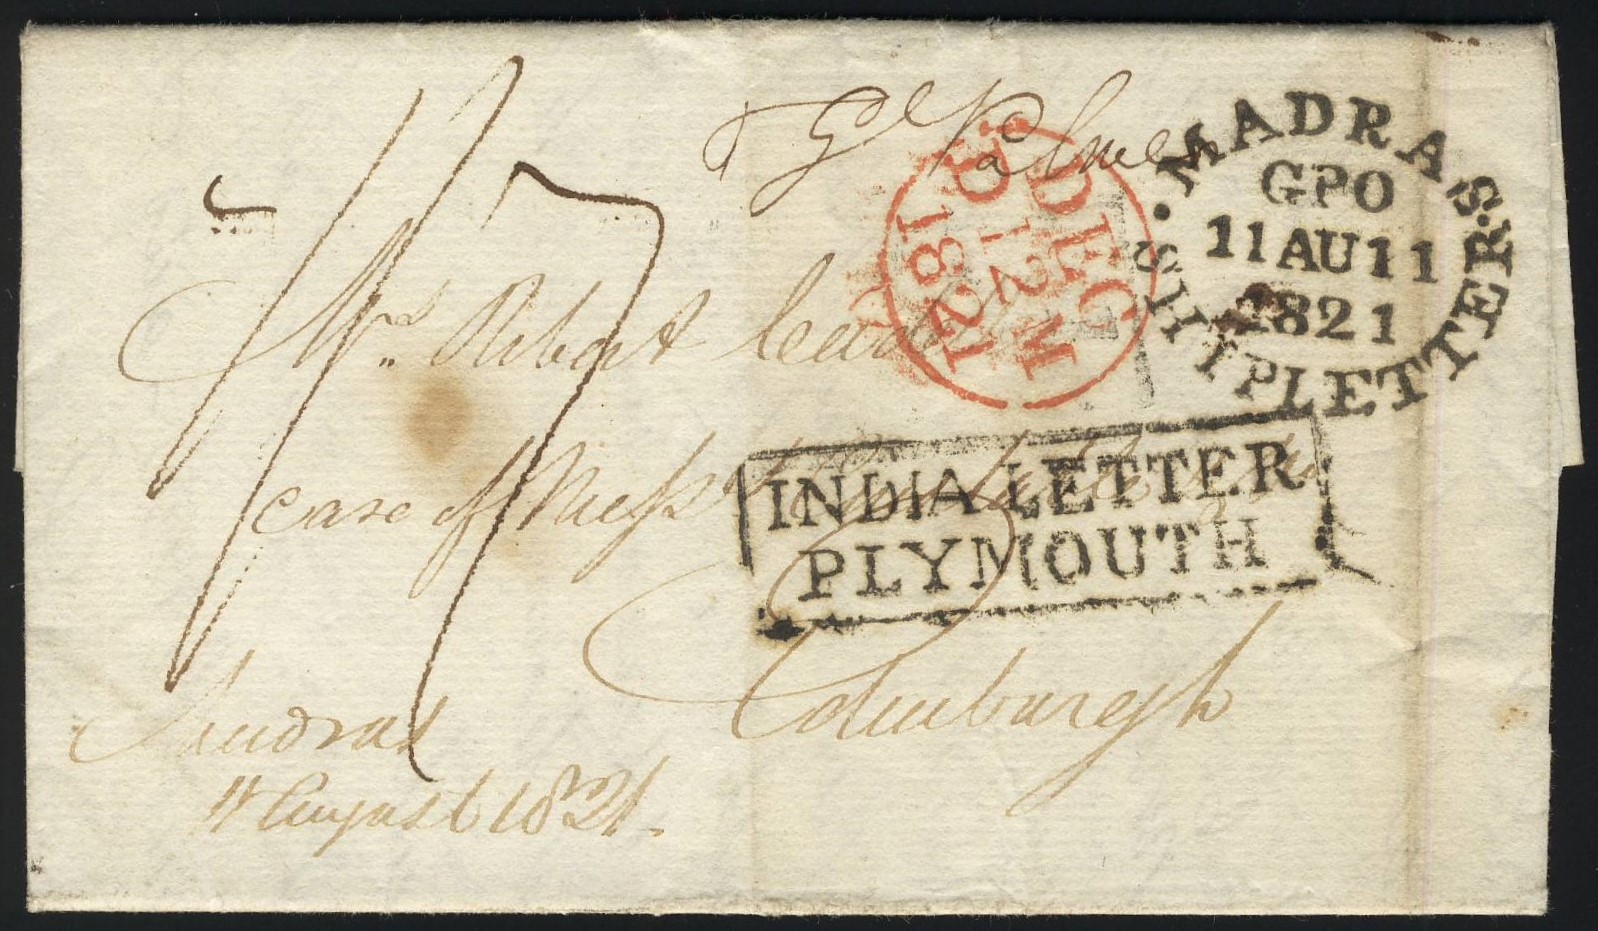 Gl Palmer
MADRAS
GPO
11 AU 11
1821
SHIP LETTER
DEC
12 M
1821
Mr. Robert
care of Mess
INDIA LETTER
PLYMOUTH
Edinburgh
Madras
11 August 1821.